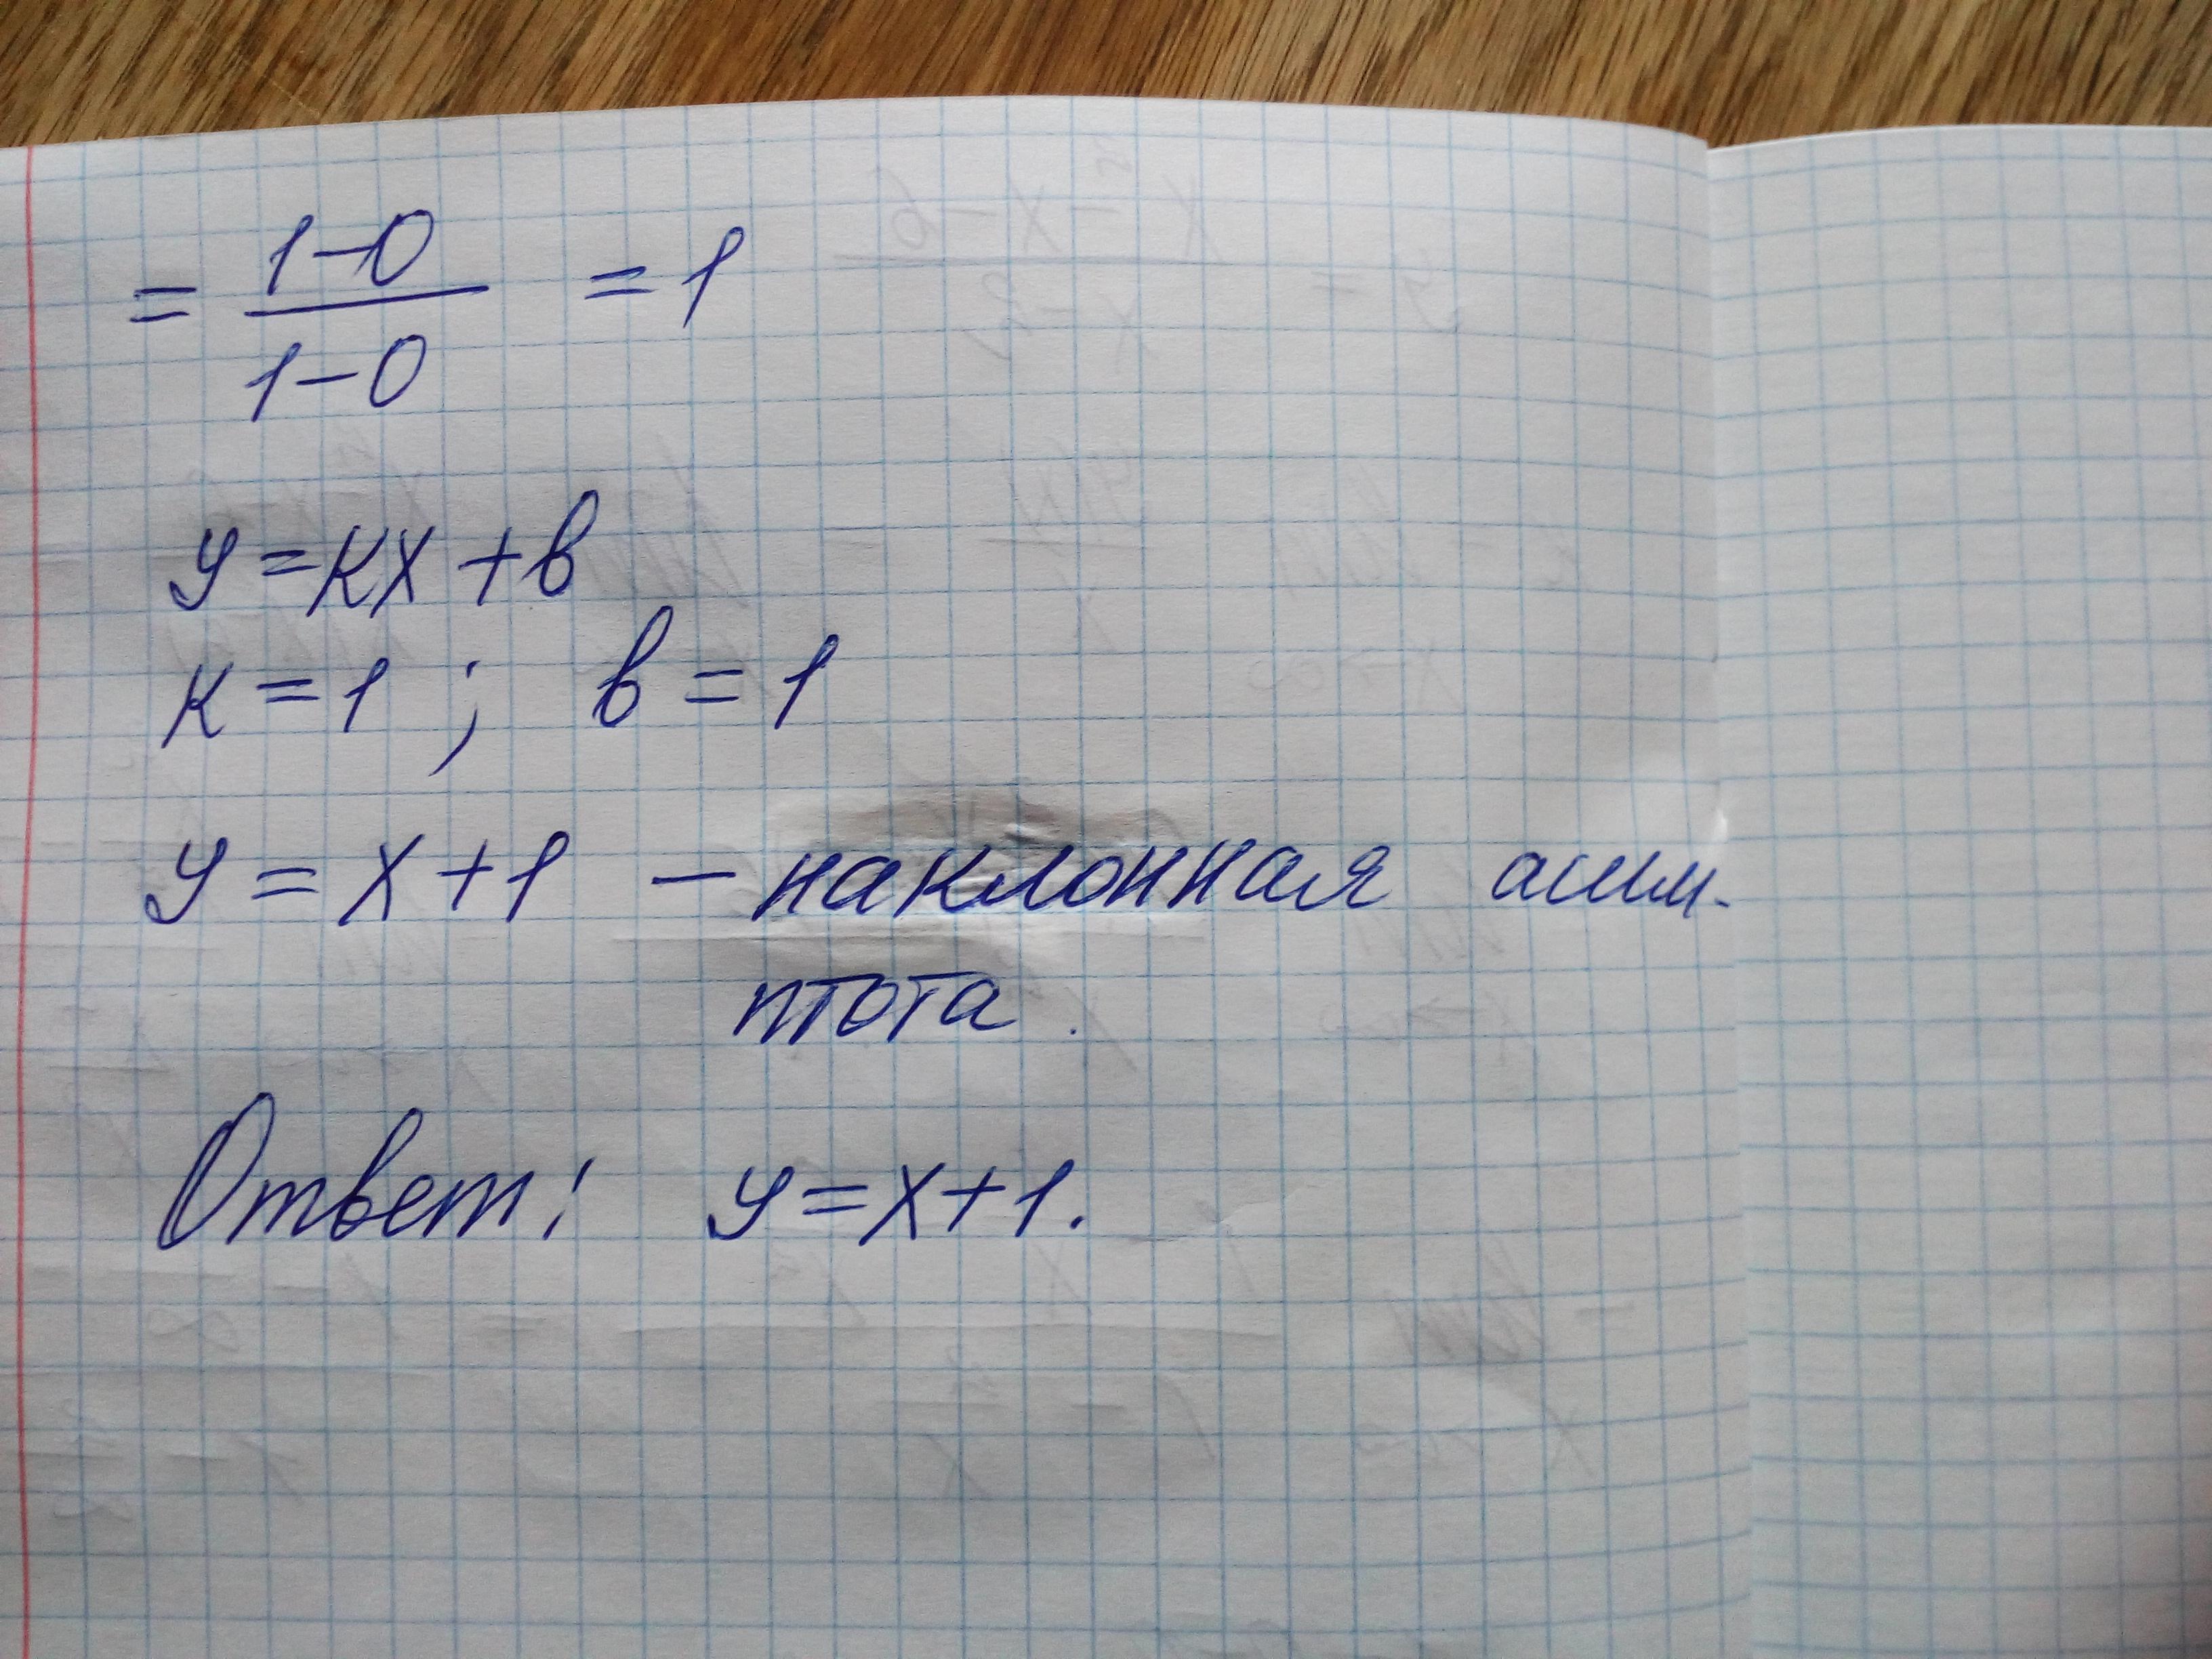 = 1-0 / 1-0 = 1
y = kx + b
k = 1 ; b = 1
y = x + 1 - наклонная асим-
птота.
Ответ: y = x + 1.